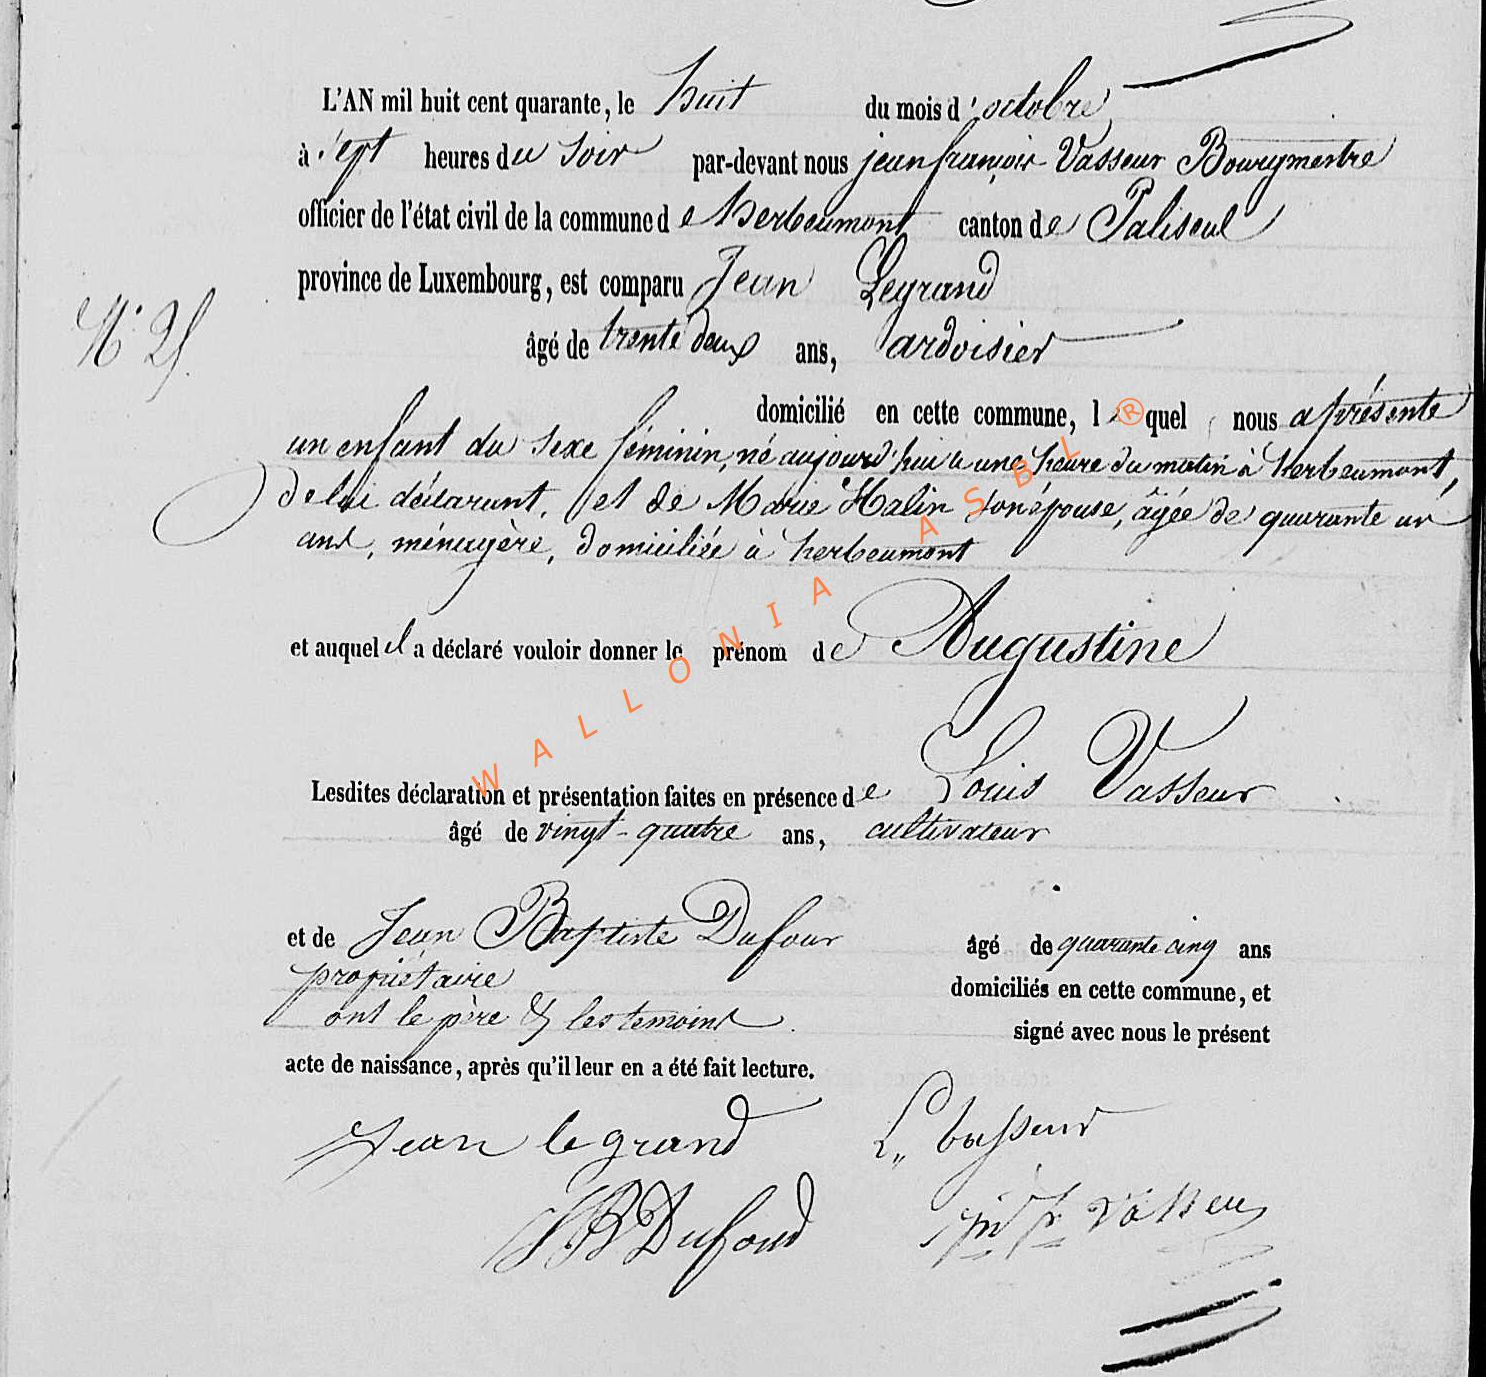 L'AN mil huit cent quarante, le huit du mois d'octobre
à sept heures du soir par-devant nous jean françois Vasseur Bourgmestre
officier de l'état civil de la commune de herbeumont canton de Paliseul
province de Luxembourg, est comparu Jean Legrand
N°
âgé de trente deux ans, ardoisier
domicilié en cette commune, lequel nous a présenté
un enfant du sexe féminin, né aujourd'hui à une heure du matin à herbeumont,
de lui déclarant, et de Marie Halin son épouse, âgée de quarante un
ans, ménagère, domiciliée à herbeumont
et auquel il a déclaré vouloir donner le prénom de Augustine
Lesdites déclaration et présentation faites en présence de Louis Vasseur
âgé de vingt-quatre ans, cultivateur
et de Jean Baptiste Dufour âgé de quarante cinq ans
propriétaire domiciliés en cette commune, et
ont le père & les temoins signé avec nous le présent
acte de naissance, après qu'il leur en a été fait lecture.
Jean legrand L. vasseur
JB Dufour Vasseur
WALLONIA ASBL ®